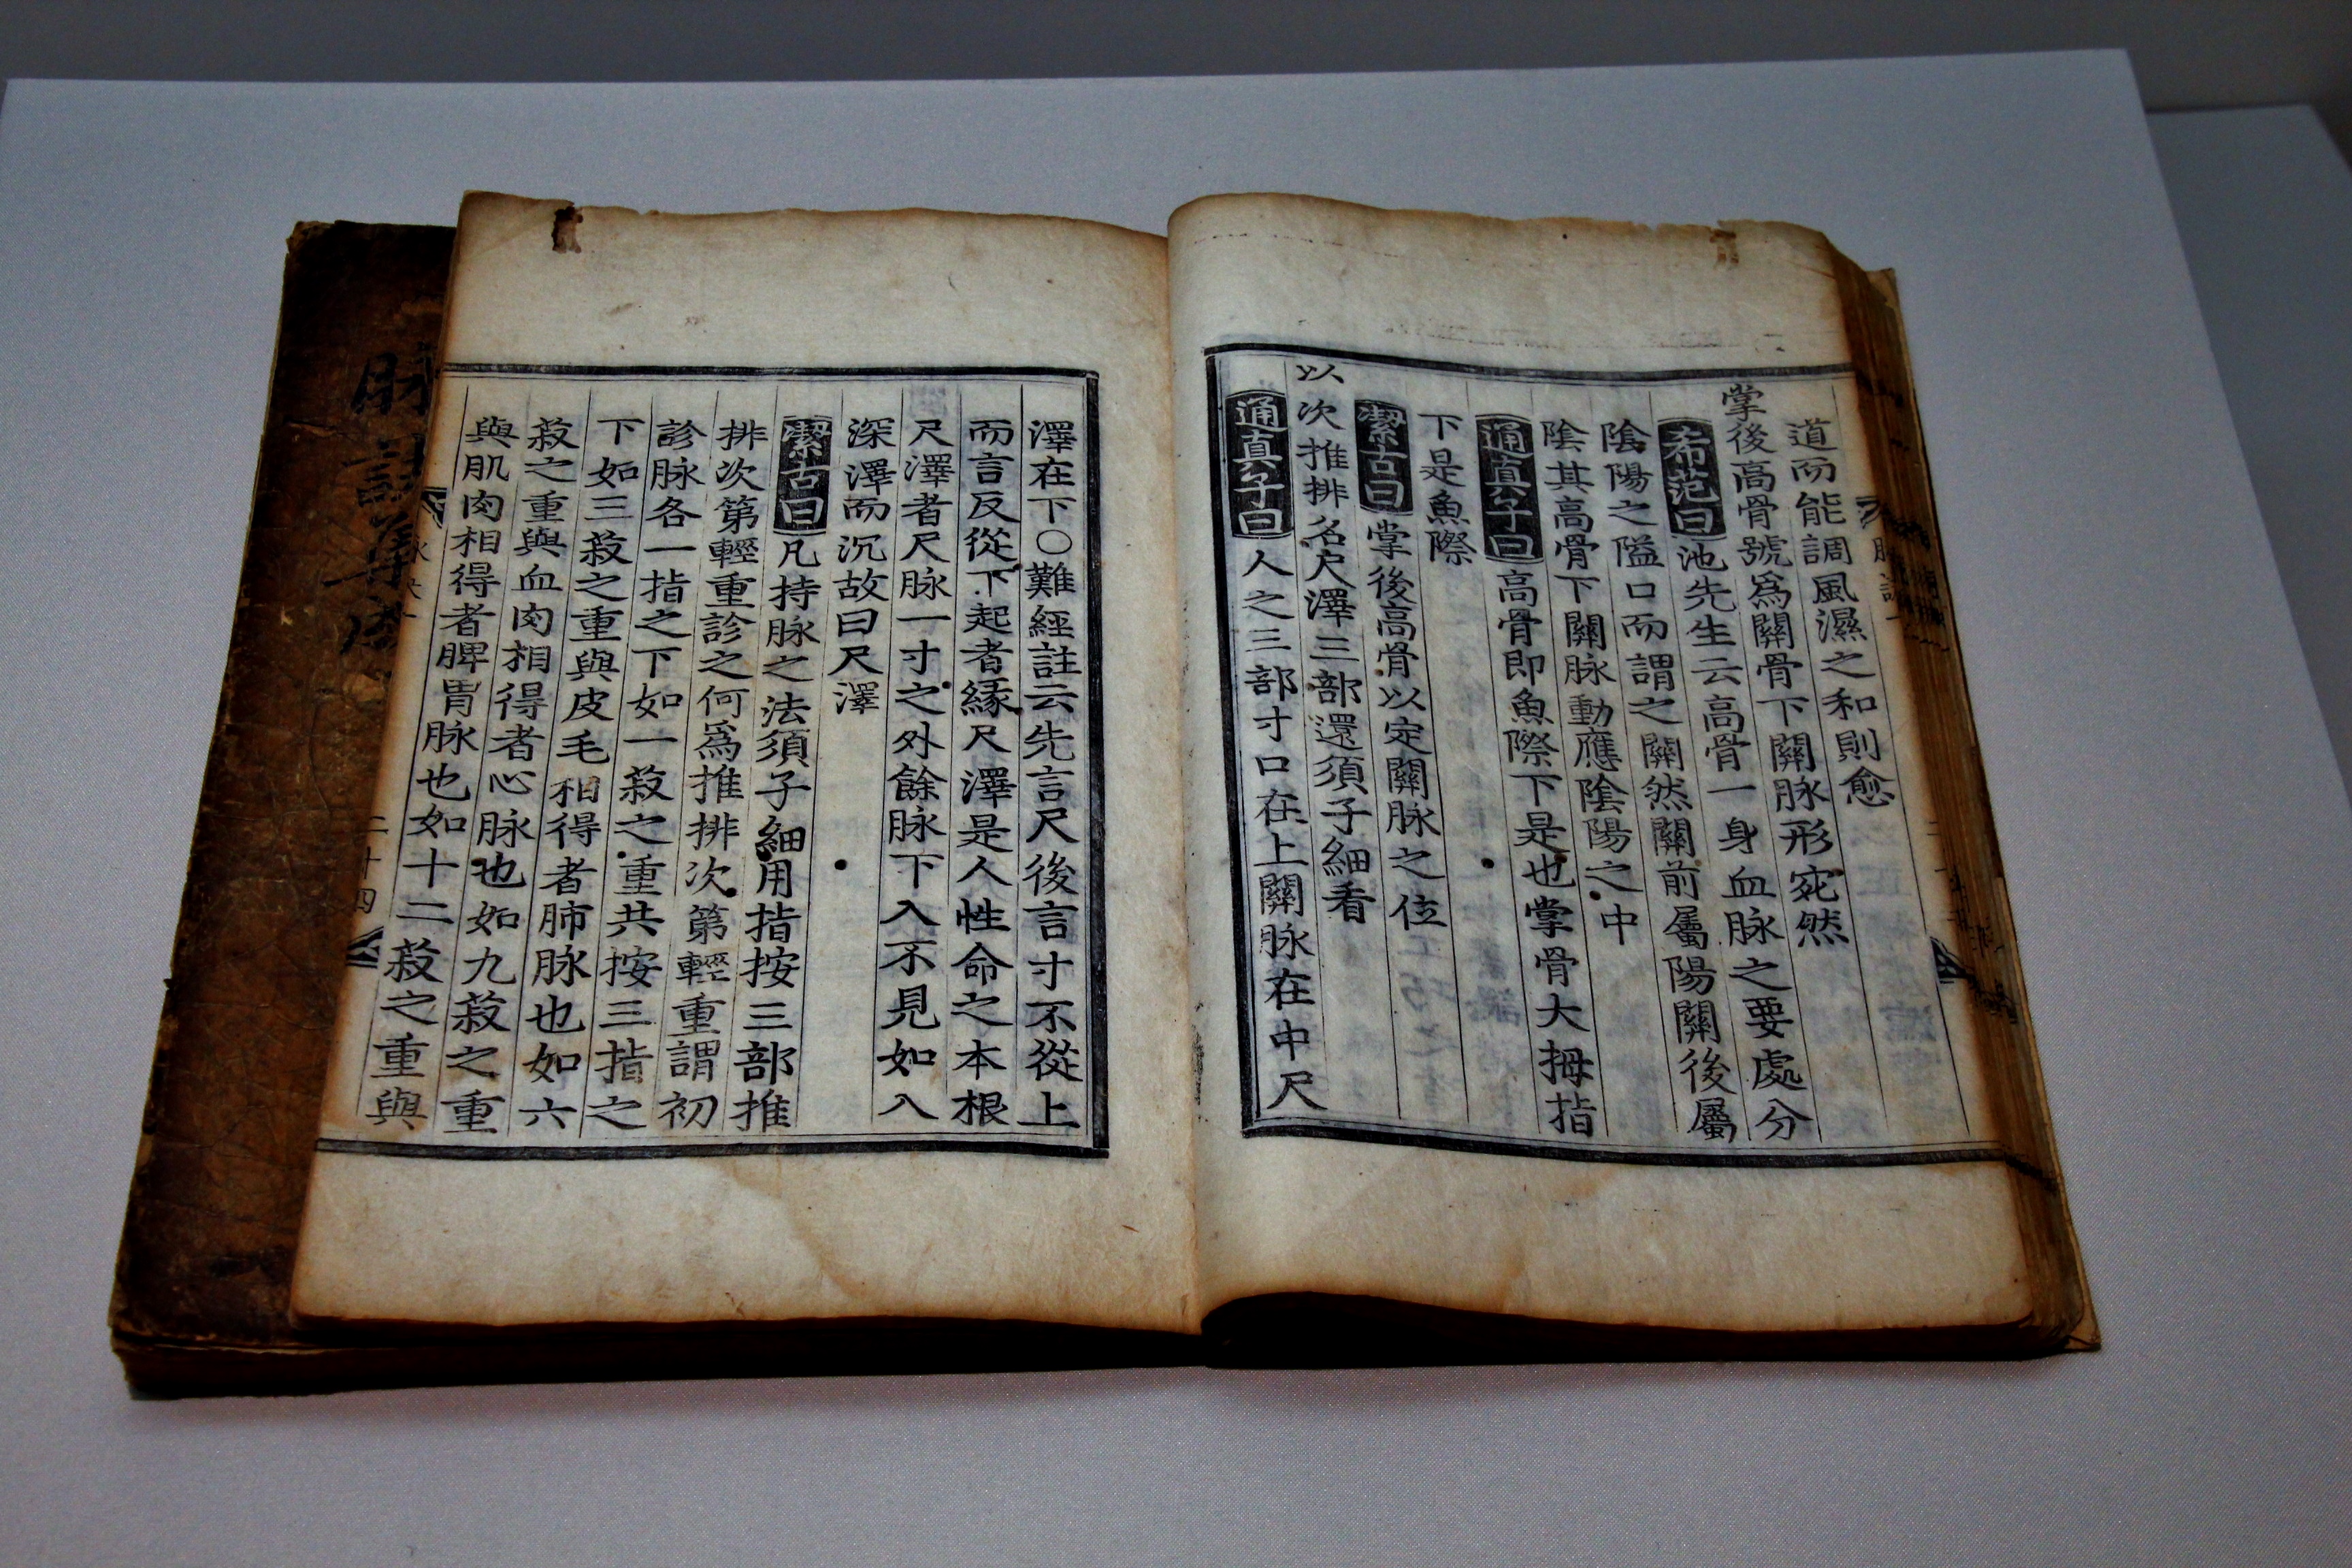 道而能調風濕之和則愈
掌後高骨號爲關骨下關脉形宛然
希范曰池先生云高骨一身血脉之要處分
陰陽之隘口而謂之關然關前屬陽關後屬
陰其高骨下關脉動應陰陽之中
通真子曰高骨即魚際下是也掌骨大拇指
下是魚際
潔古曰掌後高骨以定關脉之位
以次推排名尺澤三部還須子細看
通真子曰人之三部寸口在上關脉在中尺
澤在下○難經註云先言尺後言寸不從上
而言反從下起者緣尺澤是人性命之本根
尺澤者尺脉一寸之外餘脉下入不見如八
深澤而沉故曰尺澤
潔古曰凡持脉之法須子細用指按三部推
排次第輕重診之何爲推排次第輕重謂初
診脉各一指之下如一菽之重共按三指之
下如三菽之重與皮毛相得者肺脉也如六
菽之重與血肉相得者心脉也如九菽之重
與肌肉相得者脾胃脉也如十二菽之重與
二十四